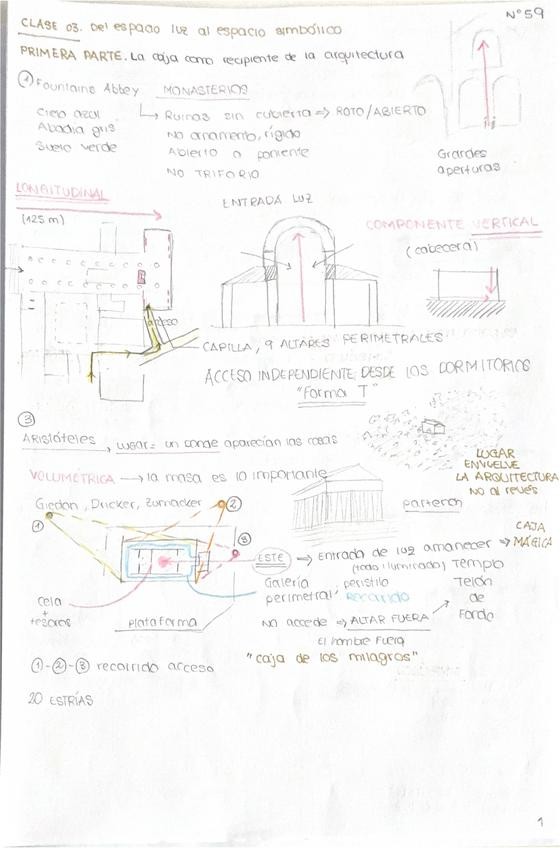 Nº 59
CLASE 03. Del espacio luz al espacio simbólico
PRIMERA PARTE. La caja como recipiente de la arquitectura
① Fountains Abbey MONASTERIOS
Cielo azul
Abadia gris
Suelo verde
Ruinas sin cubierta ⇒ ROTO/ABIERTO
No ornamento, rígido
Abierto a poniente
NO TRIFORIO
Grandes
aperturas
LONGITUDINAL
(125 m)
ENTRADA LUZ
COMPONENTE VERTICAL
(cabecera)
acceso
CAPILLA, 9 ALTARES PERIMETRALES
ACCESO INDEPENDIENTE DESDE LOS DORMITORIOS
"Forma T"
③
ARISTÓTELES, LUGAR = un donde aparecían las cosas
LUGAR
ENVUELVE
LA ARQUITECTURA
NO al revés
VOLUMÉTRICA → la masa es lo importante
partenon
Giedon, Dricker, Zumacker
①
②
③
ESTE → Entrada de luz amanecer → CAJA
MÁGICA
(todo iluminado) Templo
Galería peristilo
perimetral Recorrido
Telón
de
Fondo
cela
+
tesoros
plataforma
No accede ⇒ ALTAR FUERA
El hombre fuera
"caja de los milagros"
①-②-③ recorrido acceso
20 ESTRÍAS
1